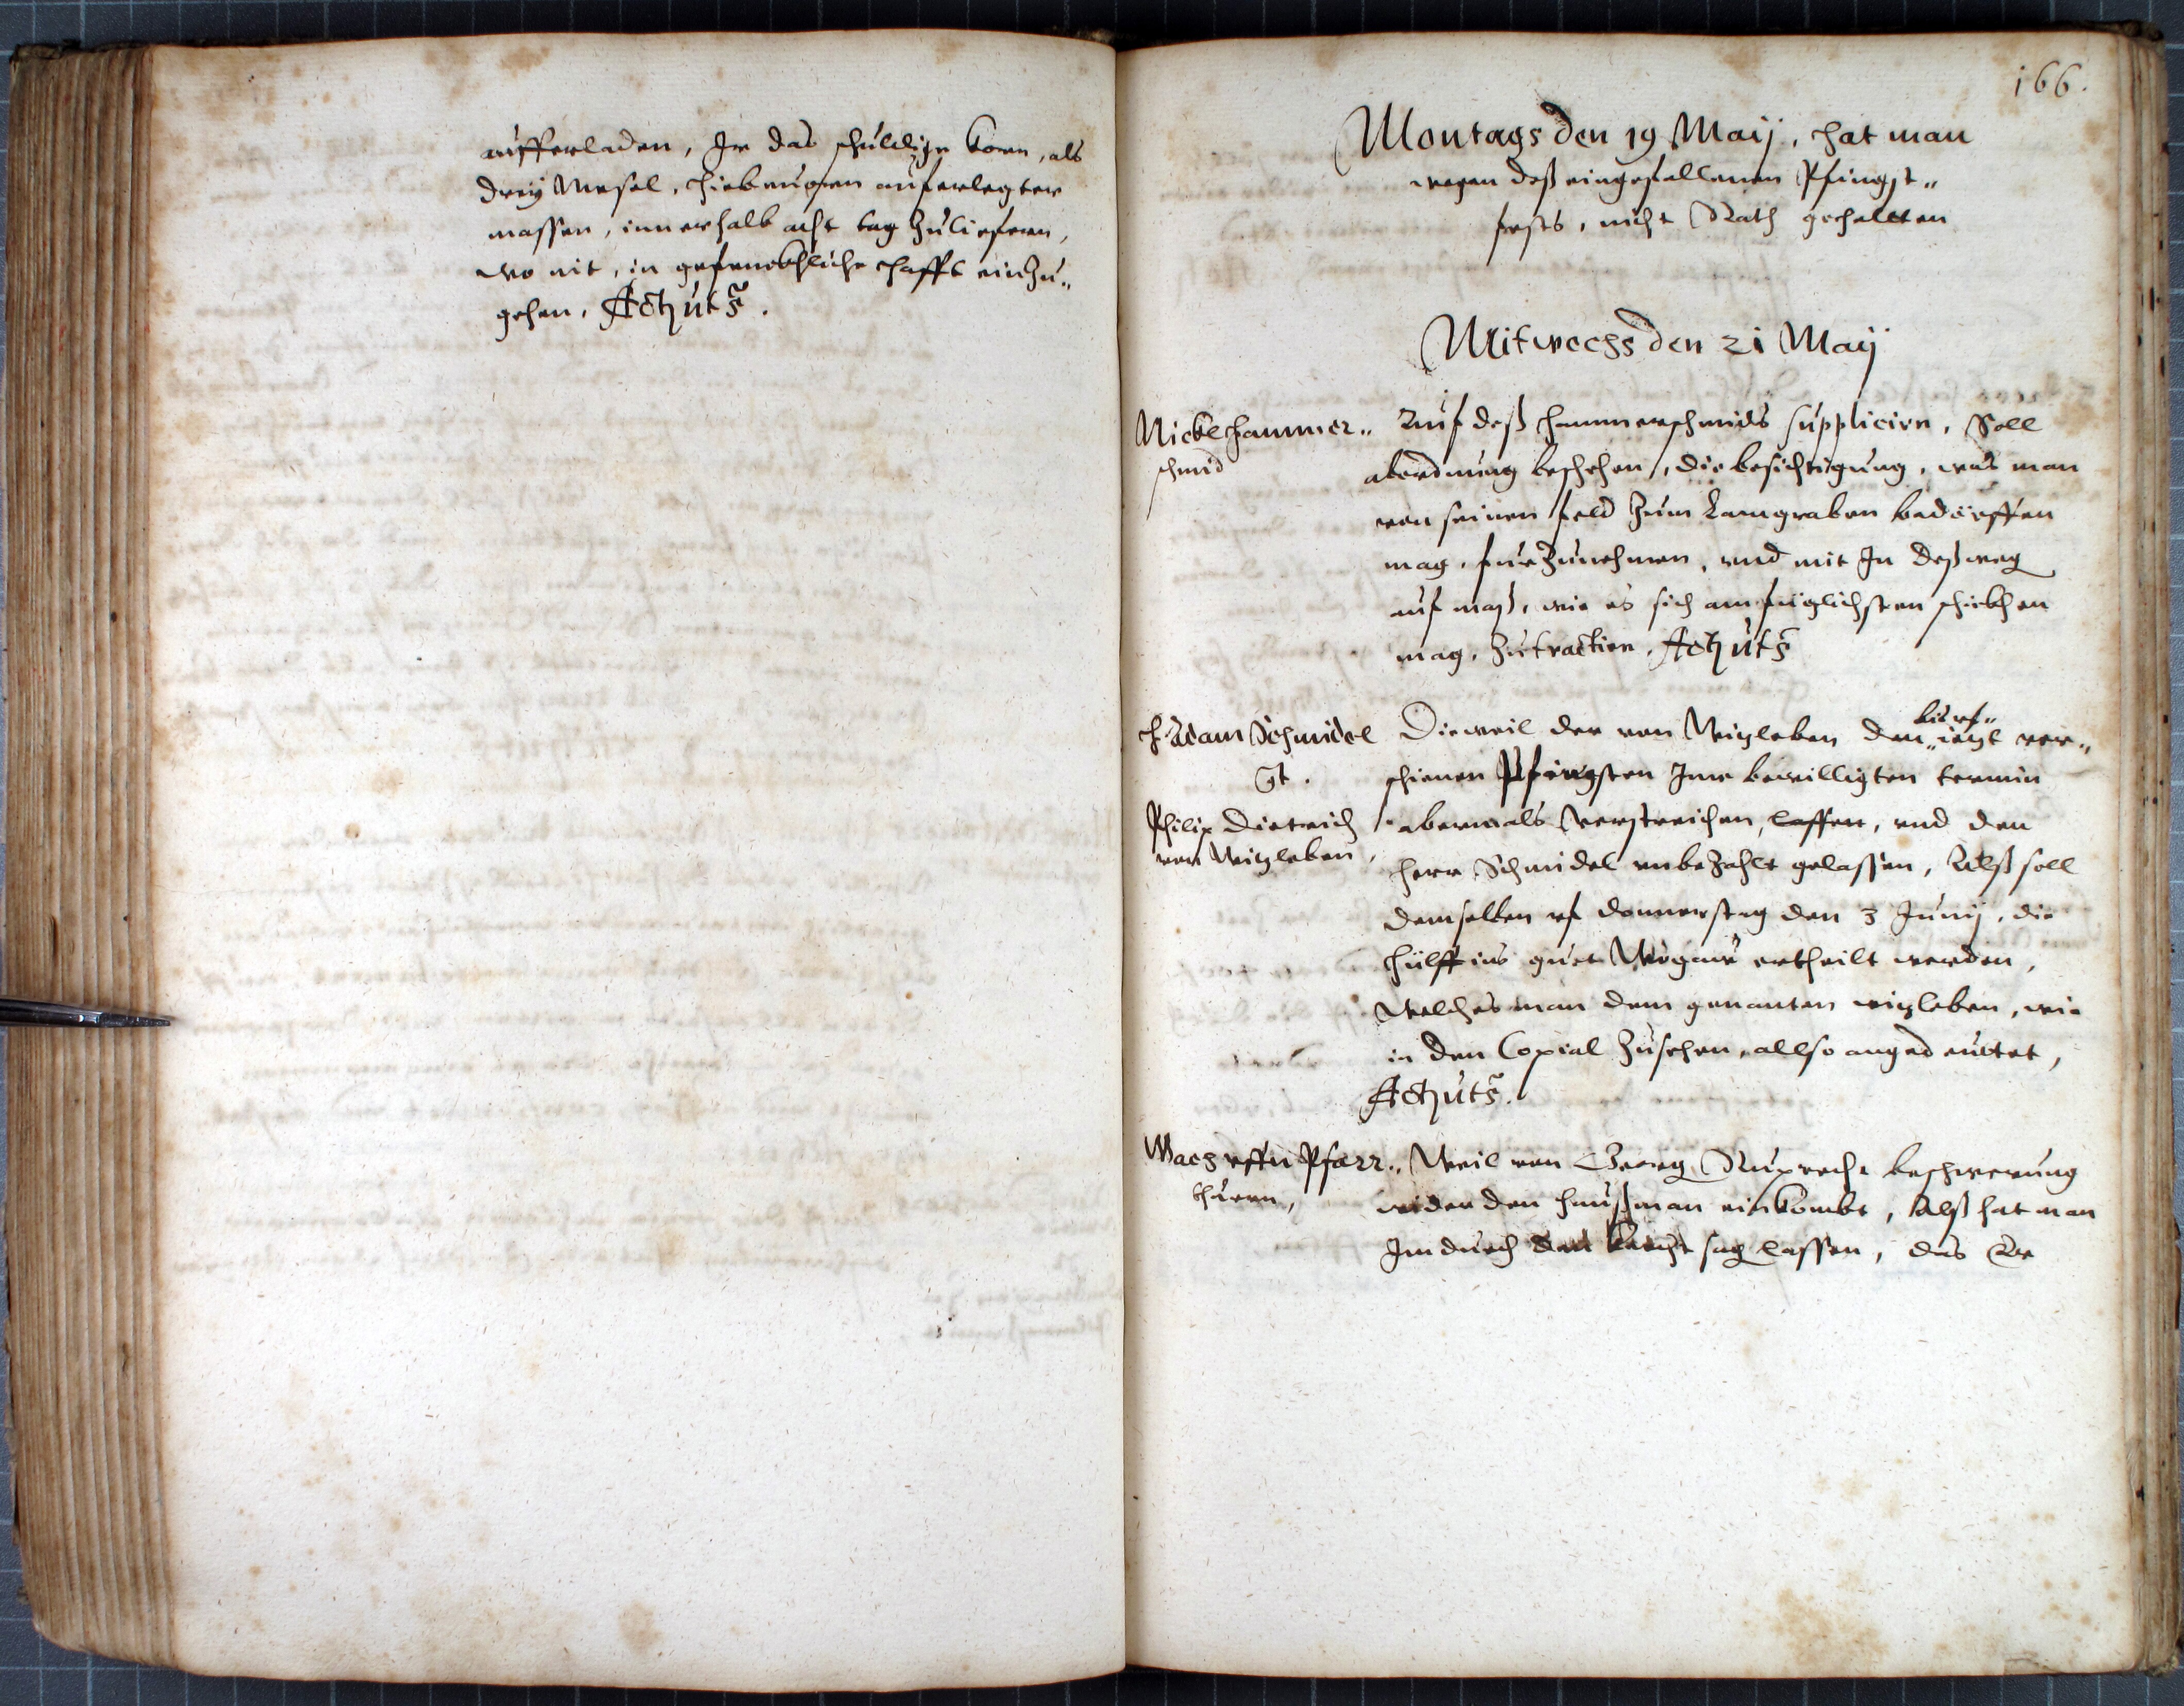 aufferladen, Ir das schuldige korn, als
drey Mesel, hiebeuohrn auferlegter
massen, innerhalb acht tag zuliefern,
wo nit, in gefenckhliche hafft einzu„
gehen. Act: ut s.
166.
Montags den 19 Maij, hat man
wegen deß eingefallenen Pfingst„
fests, nicht Rath gehallten
Mitwochs den 21 Maij
Nickl Hammer„
schmid
Auf deß Hammerschmids supplicirn, Soll
abordnung beschehen, die besichtigung, was man
von seinen feld zum bedörffen
mag, fürzunehmen, und mit Im deßweg
auf maß, wie es sich am füglichsten schickhen
mag, zutractirn. Act: ut s.
H. Adam Schmidel
Philip Dietrich
von Wizleben,
Dieweil der von Wizleben den biß uf„ iezt ver„
schienen Pfingsten Ime bewilligten termin
abermals verstreichen, lassen, und den
Herr Schmidel unbezahlt gelassen, Alß soll
demselben uf donnerstag den 3 Junij, die
hülff ins guet ertheilt werden,
welches man dem genanten wizleben, wie
in den Copial zusehen, allso angedeuttet,
Act: ut s.
Wach uffn Pfarr„
thurn,
Weil von Georg Ruprecht beschwerung
wider den haußman einkombt, Alß hat man
Im durch den knecht sag lassen, das Er